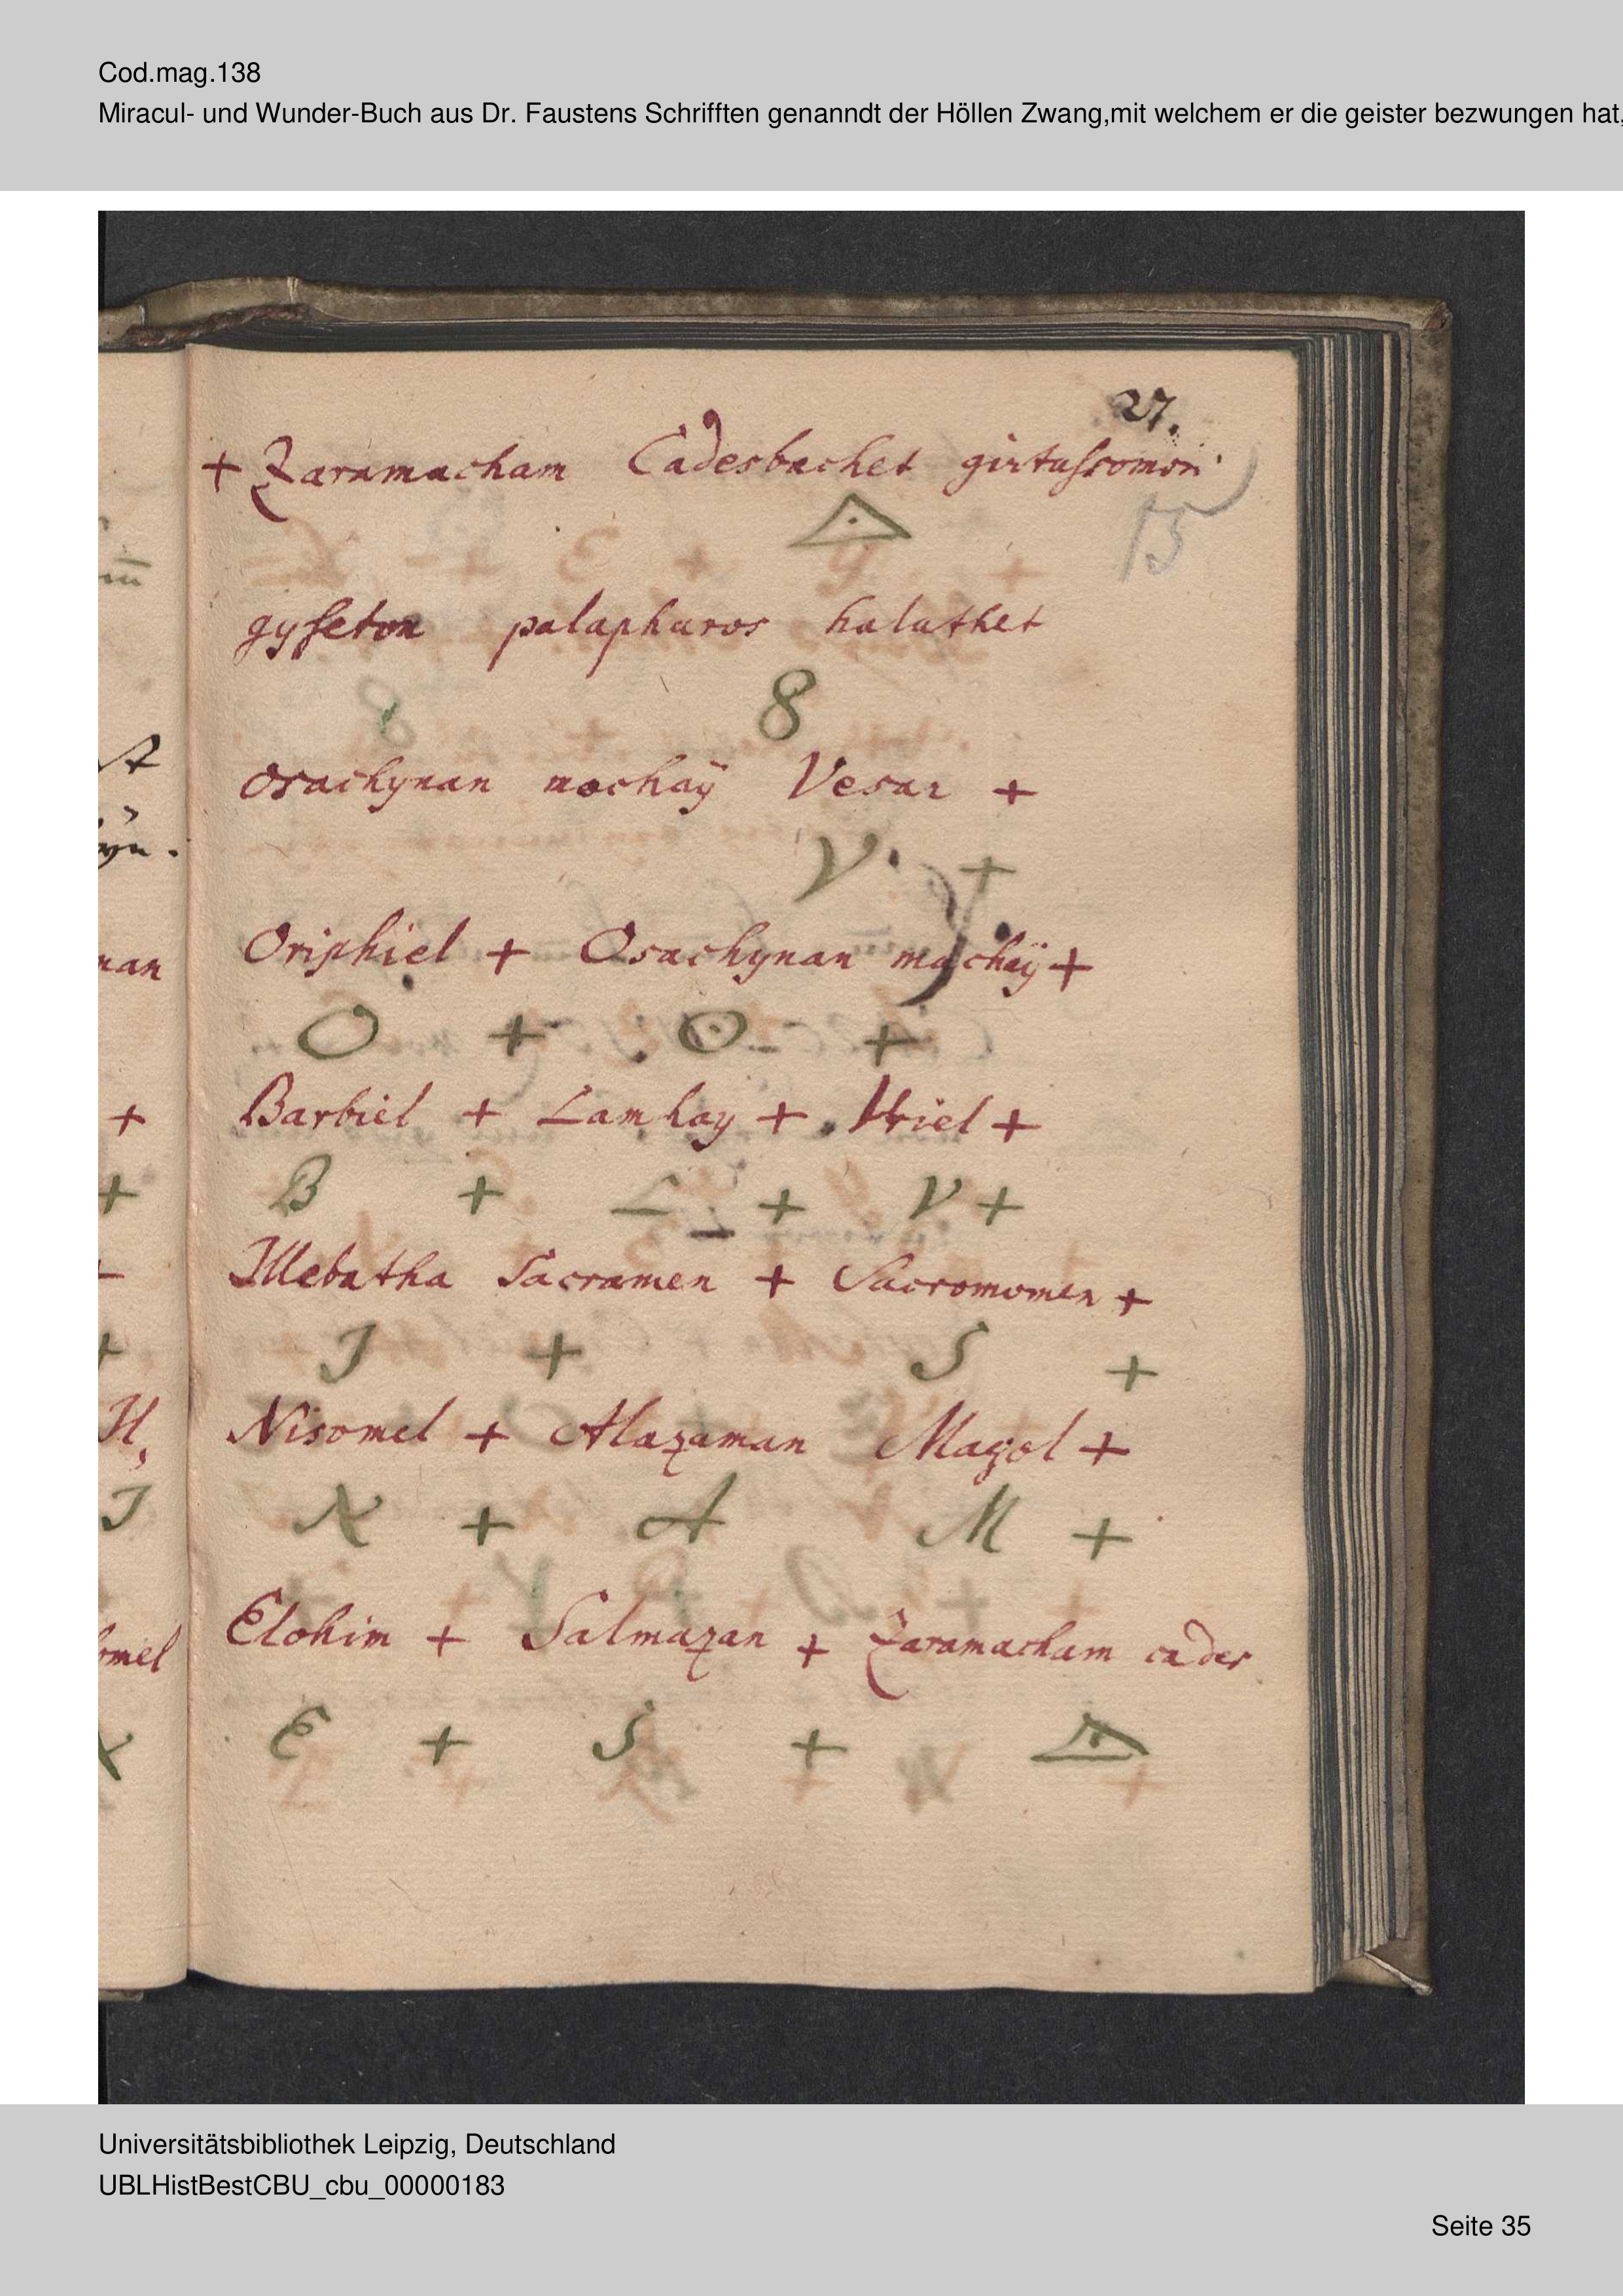 Cod.mag.138
Miracul- und Wunder-Buch aus Dr. Faustens Schrifften genanndt der Höllen Zwang,mit welchem er die geister bezwungen hat,
27.
+ Zaramacham Cadesbachet girtaſromon
15
△
gyſeton palapharos halathet
8
osachynan mochaÿ Vesar +
V. +
Oriphiel + Osachynan machaÿ +
O + O +
Barbiel + Lamhay + Vriel +
B + L + V +
Illebatha Sacramen + Sacromomen +
J + S +
Nisomel + Alazaman Magol +
N + A M +
Elohim + Salmazan + Zaramacham cades
E + S + △
Universitätsbibliothek Leipzig, Deutschland
UBLHistBestCBU_cbu_00000183
Seite 35